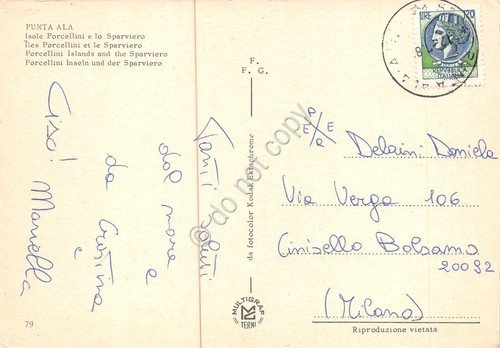 PUNTA ALA
Isole Porcellini e lo Sparviero
Îles Porcellini et le Sparviero
Porcellini Islands and the Sparviero
Porcellini Inseln und der Sparviero
F.
F. G.
LIRE 120
Tanti saluti
dal mare e
da Cristina
e
Ciao! Mariella
da fotocolor Kodak Ektachrome
© do not copy
P E
Delaini Daniela
Via Verga 106
Cinisello Balsamo
20092
(Milano)
MULTIGRAF
TERNI
79
Riproduzione vietata